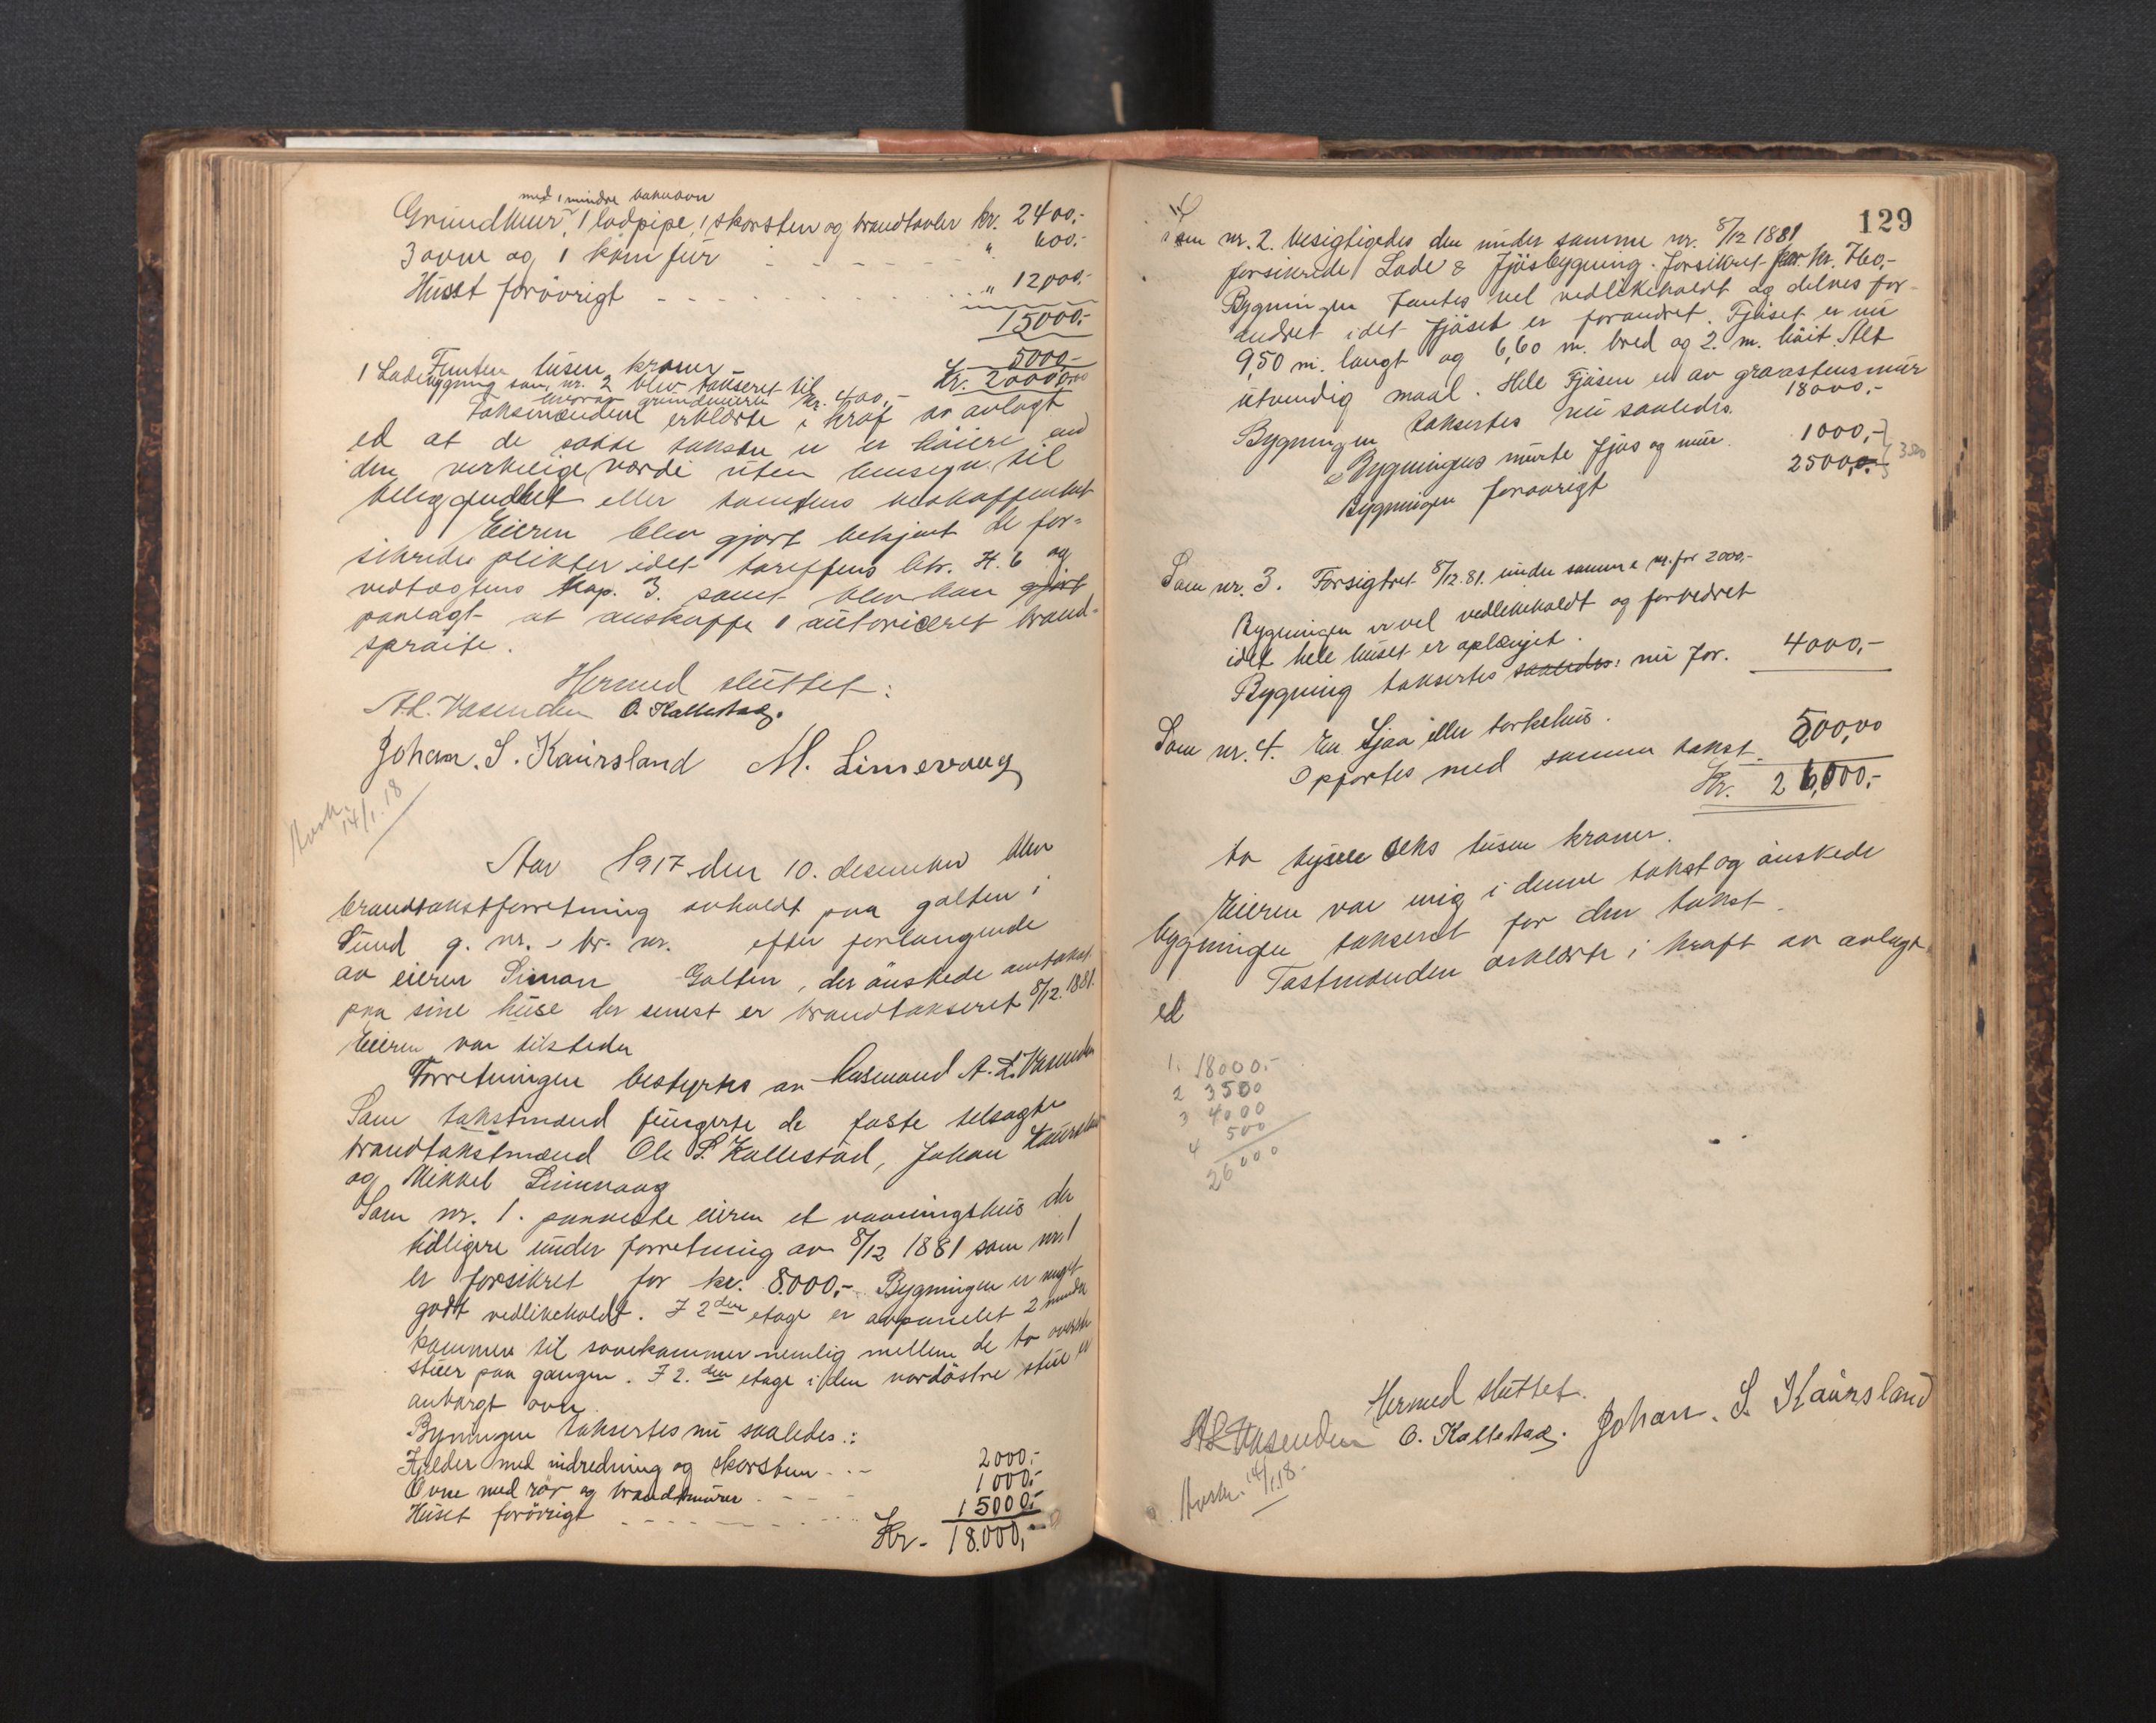 med 1 mindre bakuovn
Grundmur, 1 ladpipe, 1 skorsten og brandtavler kr. 2400,-
3 ovne og 1 komfür - - - - - " 600.-
Huset forövrigt - - - - - - - " 12000.-
15000.-
Femten tusen kroner 5000,-
1 Ladebygning som nr. 2 blev takseret til Kr. 20000,00
herav grundmuren kr. 400,-
Taksmændene erklærte i kraf av avlagt
ed at de satte takster ei er höiere end
den verkelige værdi uten hensyn til
beliggenhet eller tomtens beskaffenhet
Eieren blev gjort bekjent de for-
sikredes plikter idet tariffens litr. H. 6 og
vedtægtens Kap. 3. samt blev han gjört
paalagt at anskaffe 1 autoriceret brand-
spröite.
Hermed sluttet:
A.L. Vasenden O. Kallestad.
Johan. S. Kaursland M. Limevaag
Avsk. 14/1.18
Aar 1917 den 10. desember blev
brandtakstforretning avholdt paa galten i
Sund g. nr. - br. nr. efter forlangende
av eieren Simon Galten, der önskede omtakst.
paa sine huse der senest er brandtakseret 8/12. 1881.
Eieren var tilstede
Forretningen bestyrtes av lensmand A. L. Vasenden
Som takstmænd fungerte de faste tilsagte
brandtakstmænd Ole S. Kallestad, Johan Kaursland
og Mikkel Limevaag
Som nr. 1. paaviste eieren et vaaningshus der
tidligere under forretning av 8/12 1881 som nr. 1
er forsikret for kr. 8000,- Bygningen er meget
godt vedlikeholdt. I 2den etage er avpanelet 2 mindre
kammere til sovekammer nemlig mellem de to
stuer paa gangen. I 2. den etage i den nordöstre stue er
anbragt ovn.
Byningen taksertes nu saaledes.:
Kjelder med indredning og skorsten - - - 2000,-
Ovne med rör og brandmurer - - - 1000,-
Huset forövrigt - - - - - - - 15000,-
Kr. 18.000,-
129
Som nr. 2. besigtigedes den under samme nr. 8/12 1881
forsikrede Lade & Fjösbygning. Forsikret for kr. 760,-
Bygningen fantes vel vedlikeholdt og delvis for-
andret idet fjöset er forandret. Fjöset er nu
9,50 m. langt og 6,60 m. bred og 2. m. höit. Alt
utvendig maal. Hele Fjösen er av graastensmur
Bygningen taksertes nu saaledes. 18000,-
Bygningens murte fjös og mur. 1000,-
Bygningen forövrigt 2500,- 3500
Som nr. 3. Forsigtret 8/12.81. under samme nr. for 2000,-
Bygningen er vel vedlikeholdt og forbedret
idet hele huset er oplænjet.
Bygning taksertes saaledes: nu for. 4000,-
Som nr. 4. En Sjaa eller törkehus.
Opförtes med samme takst 500,00
Kr. 26,000,-
to tysen seks tusen kroner.
Eieren var enig i denne takst og önskede
bygningen takseret for den takst.
Tastmænden erklærte i kraft av avlagt
ed
1. 18000.-
2 3500
3 4000
4 500
26000
Hermed sluttet.
A L Vasenden O. Kallestad. Johan. S. Kaursland
Avskr. 14/1.18-